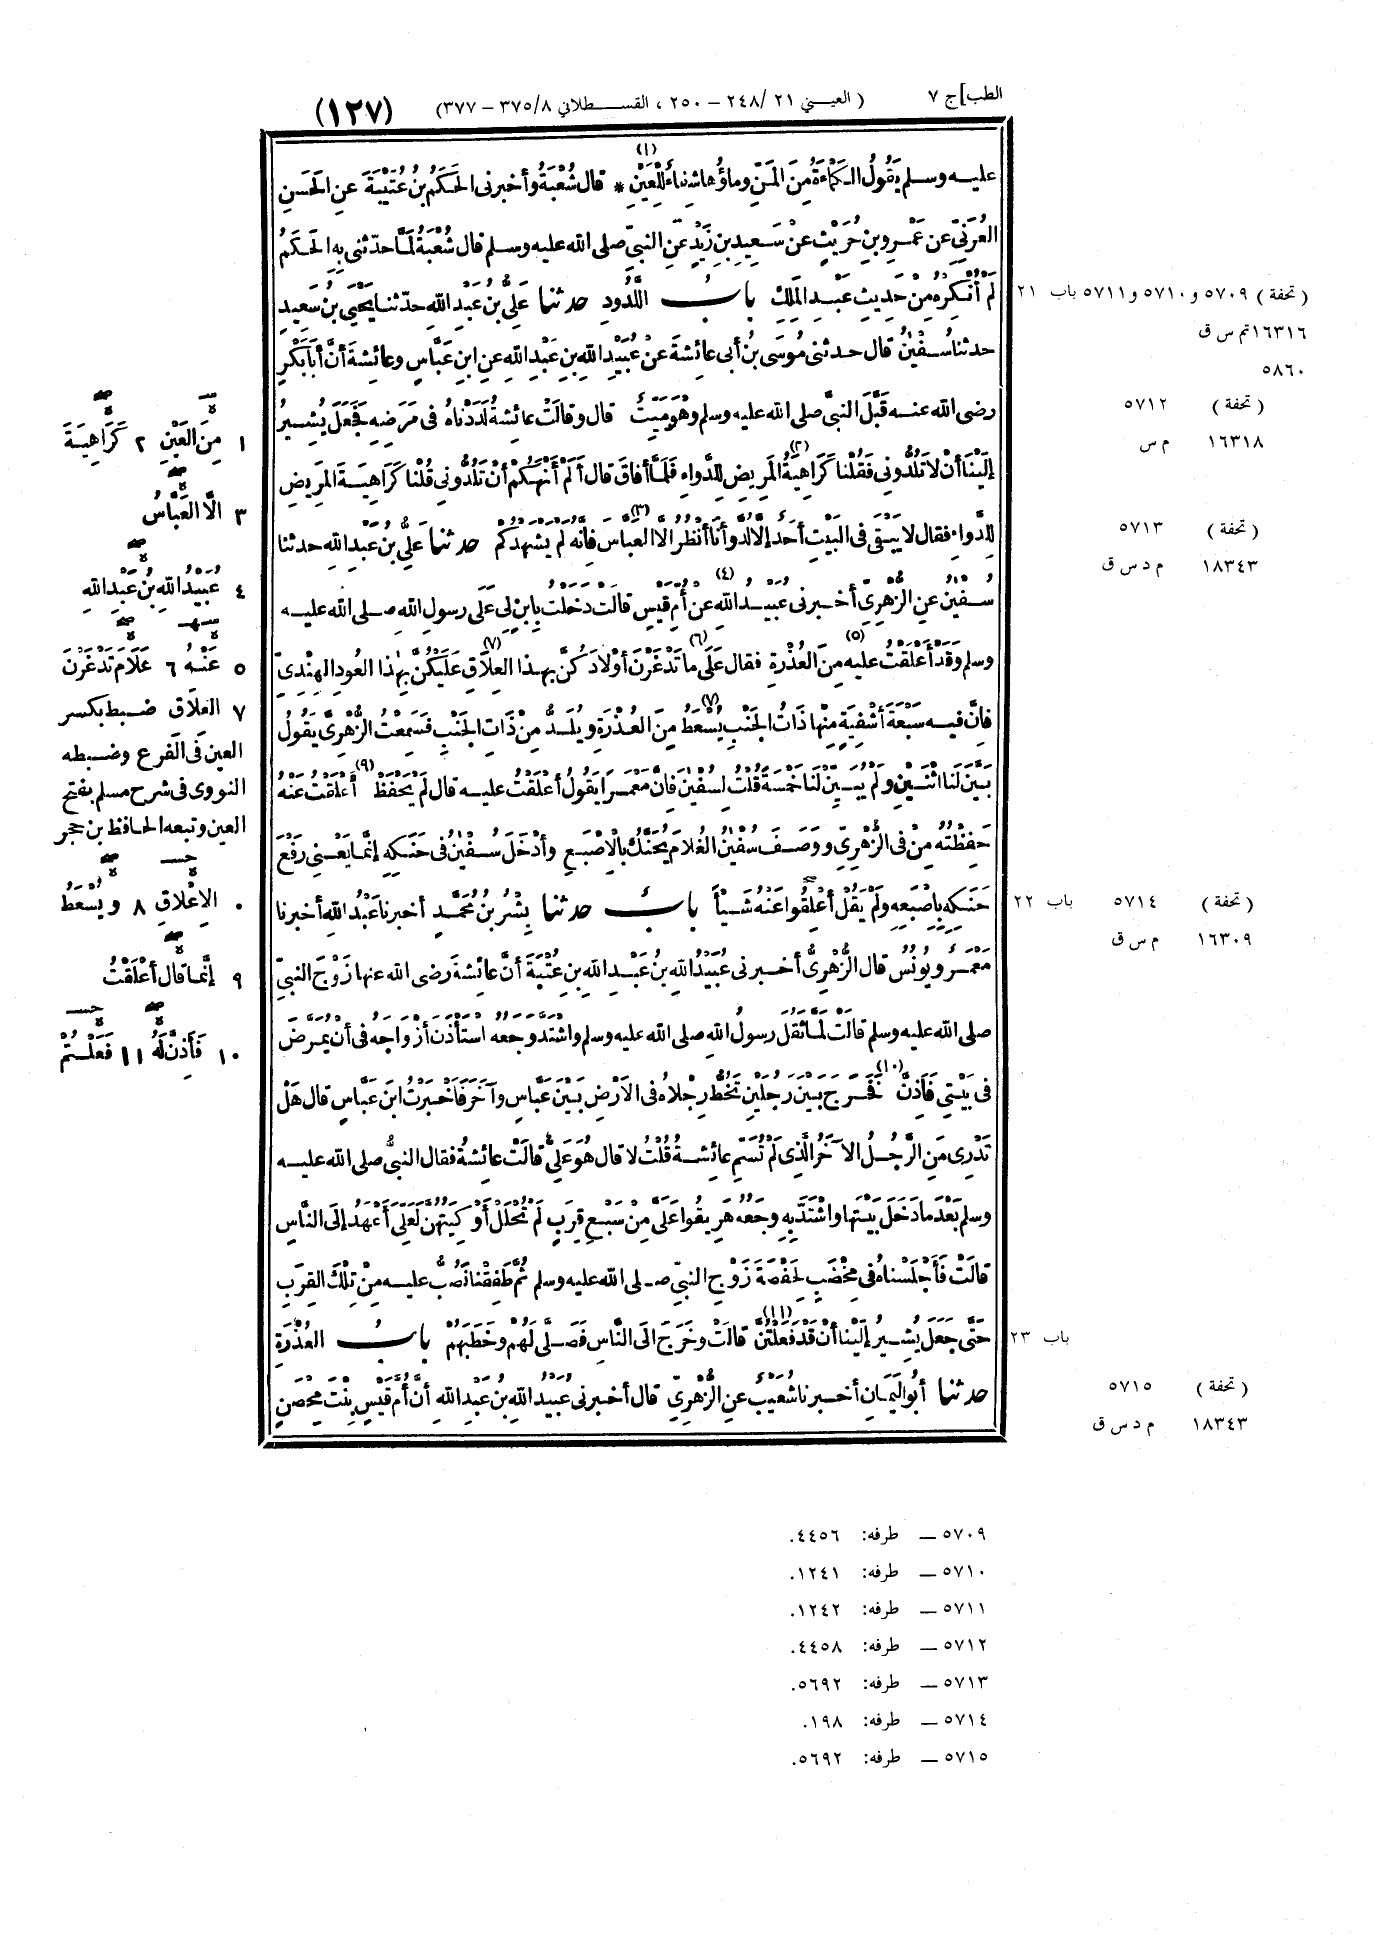 الطب] ج ٧
( العيني ٢١/ ٢٤٨ – ٢٥٠ ، القسطلاني ٨/ ٣٧٥ – ٣٧٧)
(١٢٧)
عليه وسلم يَقُولُ الكَمْأَةُ مِنَ المَنِّ وماؤُها شِفاءٌ لِلْعَيْنِ (١) * قال شُعْبَةُ وأخبرنى الحَكَمُ بنُ عُتَيْبَةَ عنِ الحَسَنِ
العُرَنِيِّ عن عَمْرِو بنِ حُرَيْثٍ عنْ سَعِيدِ بنِ زَيْدٍ عنِ النبيِّ صلى الله عليه وسلم قال شُعْبَةُ لَمَّا حدّثنى بِهِ الحَكَمُ
لَمْ أُنْكِرْهُ مِنْ حَدِيثِ عَبْدِ المَلِكِ بابُ اللَّدُودِ حدثنا عَلِيُّ بنُ عَبْدِ اللهِ حدّثنا يَحْيَى بنُ سَعِيدٍ
حدثنا سُفْيٰنُ قال حدثنى مُوسَى بنُ أبى عائِشةَ عنْ عُبَيْدِ اللهِ بنِ عَبْدِ اللهِ عنِ ابنِ عَبَّاسٍ وعائِشةَ أنَّ أبا بَكْرٍ
رضى الله عنه قَبَّلَ النبيَّ صلى الله عليه وسلم وهْوَ مَيِّتٌ قال وقالَتْ عائِشةُ لَدَدْناهُ فى مَرَضِهِ فَجَعَلَ يُشِيرُ
إلَيْنا أنْ لا تَلُدُّونى فَقُلْنا كَراهِيَةُ (٢) المَرِيضِ لِلدَّواءِ فَلَمَّا أفاقَ قال ألَمْ أنْهَكُمْ أنْ تَلُدُّونى قُلْنا كَراهِيَةَ المَرِيضِ
لِلدَّواءِ فقال لا يَبْقَى فى البَيْتِ أحَدٌ إلَّا لُدَّ وأنا أنْظُرُ إلَّا (٣) العَبَّاسَ فإنَّهُ لَمْ يَشْهَدْكُمْ حدثنا عَلِيُّ بنُ عَبْدِ اللهِ حدثنا
سُفْيٰنُ عنِ الزُّهْرِيِّ أخبرنى عُبَيْدُ اللهِ (٤) عن أُمِّ قَيْسٍ قالَتْ دَخَلْتُ بِابْنٍ لِى عَلَى رسولِ اللهِ صلى الله عليه
وسلم وقَدْ أعْلَقْتُ عليه (٥) مِنَ العُذْرَةِ فقال عَلَى ما (٦) تَدْغَرْنَ أوْلادَكُنَّ بهذا العِلاقِ (٧) عَلَيْكُنَّ بِهٰذا العُودِ الهِنْدِيِّ
فانَّ فيه سَبْعَةَ أشْفِيَةٍ مِنْها ذاتُ الجَنْبِ يُسْعَطُ (٧) مِنَ العُذْرَةِ ويُلَدُّ مِنْ ذاتِ الجَنْبِ فَسَمِعْتُ الزُّهْرِيَّ يَقُولُ
بَيَّنَ لَنا اثْنَيْنِ ولَمْ يُبَيِّنْ لَنا خَمْسَةً قُلْتُ لِسُفْيٰنَ فانَّ مَعْمَرًا يَقُولُ أعْلَقْتُ عليه قال لَمْ يَحْفَظْ (٩) أعْلَقْتُ عنْهُ
حَفِظْتُهُ مِنْ فِى الزُّهْرِيِّ ووَصَفَ سُفْيٰنُ الغُلامَ يُحَنَّكُ بالْإصْبَعِ وأدْخَلَ سُفْيٰنُ فى حَنَكِهِ إنَّما يَعْنِى رَفْعَ
حَنَكِهِ بِإصْبَعِهِ ولَمْ يَقُلْ أعْلِقُوا عَنْهُ شَيْأً بابٌ حدثنا بِشْرُ بنُ مُحَمَّدٍ أخبرنا عَبْدُ اللهِ أخبرنا
مَعْمَرٌ ويُونُسُ قال الزُّهْرِيُّ أخبرنى عُبَيْدُ اللهِ بنُ عَبْدِ اللهِ بنِ عُتْبَةَ أنَّ عائِشةَ رضى الله عنها زَوْجَ النبيِّ
صلى الله عليه وسلم قالَتْ لَمَّا ثَقُلَ رسولُ اللهِ صلى الله عليه وسلم واشْتَدَّ وجَعُهُ اسْتَأْذَنَ أزْواجَهُ فى أنْ يُمَرَّضَ
فى بَيْتِى فَأذِنَّ (١٠) فَخَرَجَ بَيْنَ رَجُلَيْنِ تَخُطُّ رِجْلاهُ فى الأرْضِ بَيْنَ عَبَّاسٍ وآخَرَ فَأخْبَرْتُ ابنَ عَبَّاسٍ قال هَلْ
تَدْرِى مَنِ الرَّجُلُ الآخَرُ الَّذِى لَمْ تُسَمِّ عائِشةُ قُلْتُ لا قال هُوَ عَلِيٌّ قالَتْ عائِشةُ فقال النبيُّ صلى الله عليه
وسلم بَعْدَ ما دَخَلَ بَيْتَها واشْتَدَّ بِهِ وجَعُهُ هَرِيقُوا عَلَيَّ مِنْ سَبْعِ قِرَبٍ لَمْ تُحْلَلْ أوْكِيَتُهُنَّ لَعَلِّى أعْهَدُ إلَى النَّاسِ
قالَتْ فَأجْلَسْناهُ فى مِخْضَبٍ لِحَفْصَةَ زَوْجِ النبيِّ صلى الله عليه وسلم ثُمَّ طَفِقْنا نَصُبُّ عليه مِنْ تِلْكَ القِرَبِ
حَتَّى جَعَلَ يُشِيرُ إلَيْنا أنْ قَدْ فَعَلْتُنَّ (١١) قالَتْ وخَرَجَ الَى النَّاسِ فَصَلَّى لَهُمْ وخَطَبَهُمْ بابُ العُذْرَةِ
حدثنا أبُو اليَمانِ أخبرنا شُعَيْبٌ عنِ الزُّهْرِيِّ قال أخبرنى عُبَيْدُ اللهِ بنُ عَبْدِ اللهِ أنَّ أُمَّ قَيْسٍ بِنْتَ مِحْصَنٍ
( تحفة ) ٥٧٠٩ و٥٧١٠ و٥٧١١ باب ٢١
١٦٣١٦ تم س ق
٥٨٦٠
( تحفة ) ٥٧١٢
١٦٣١٨ م س
( تحفة ) ٥٧١٣
١٨٣٤٣ م د س ق
( تحفة ) ٥٧١٤ باب ٢٢
١٦٣٠٩ م س ق
باب ٢٣
( تحفة ) ٥٧١٥
١٨٣٤٣ م د س ق
١ مِنَ العَيْنِ ٢ كَرَاهِيَةَ
٣ الَّا العَبَّاسُ
٤ عُبَيْدُ اللهِ بنُ عَبْدِ اللهِ
٥ عَنْهُ ٦ عَلَامَ تَدْغَرْنَ
٧ العلاق ضبط بكسر
العين فى الفرع وضبطه
النووى فى شرح مسلم بفتح
العين وتبعه الحافظ بن حجر
. الإعْلاقِ ٨ ويُسْعَطُ
٩ إنَّما قال أعْلَقْتُ
١٠ فَأَذِنَّ لَهُ ١١ فَعَلْتُمْ
٥٧٠٩ – طرفه: ٤٤٥٦.
٥٧١٠ – طرفه: ١٢٤١.
٥٧١١ – طرفه: ١٢٤٢.
٥٧١٢ – طرفه: ٤٤٥٨.
٥٧١٣ – طرفه: ٥٦٩٢.
٥٧١٤ – طرفه: ١٩٨.
٥٧١٥ – طرفه: ٥٦٩٢.